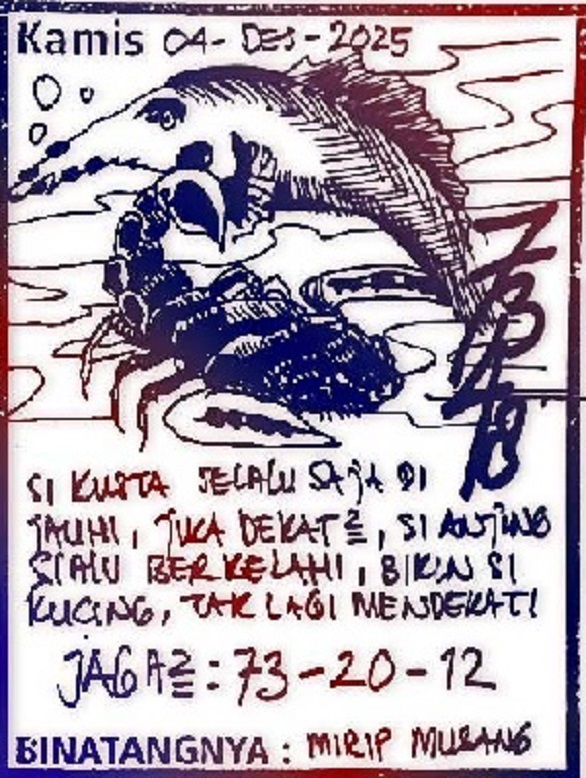 Kamis 04-DES-2025
SI KUSTA SELALU SAJA DI
JAUHI, JIKA DEKAT2, SI ANJING
SLALU BERKELAHI, BIKIN SI
KUCING, TAK LAGI MENDEKATI
JAGA2 : 73-20-12
BINATANGNYA : MIRIP MUSANG